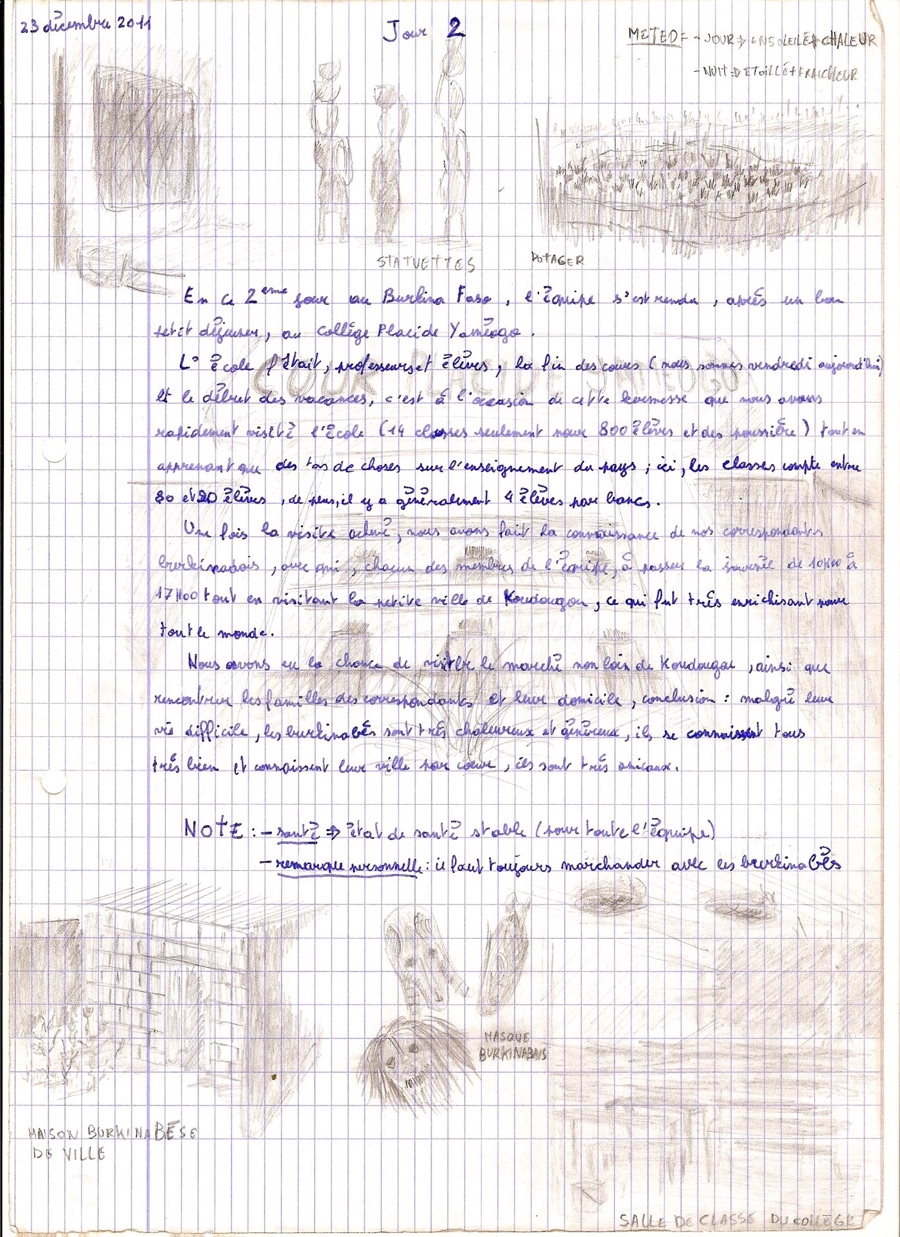 23 décembre 2011
Jour 2
METEO : - JOUR → ENSOLEILÉ + CHALEUR
- NUIT → ETOILLÉ + FRAICHEUR
STATUETTES
POTAGER
En ce 2ème jour au Burkina Faso, l'équipe s'est rendu, après un bon
petit déjeuner, au Collège Placide Yaméogo.
L' école fêtait, professeurs et élèves, la fin des cours (nous sommes vendredi aujourd'hui)
et le début des vacances, c'est à l'occasion de cette kermesse que nous avons
rapidement visité l'école (14 classes seulement pour 800 élèves et des poussière) tout en
apprenant que des tas de choses sur l'enseignement du pays ; ici, les classes compte entre
80 et 90 élèves, de plus, il y a généralement 4 élèves par bancs.
Une fois la visite achevé, nous avons fait la connaissance de nos correspondants
burkinabais, avec qui, chacun des membres de l'équipe, à passer la journée de 10H00 à
17H00 tout en visitant la petite ville de Koudougou, ce qui fut très enrichisant pour
tout le monde.
Nous avons eu la chance de visiter le marché non loin de Koudougou, ainsi que
rencontrer les familles des correspondants et leur domicile, conclusion : malgré leur
vie difficile, les burkinabés sont très chaleureux et généreux, ils se connaissent tous
très bien et connaissent leur ville par coeur, ils sont très amicaux.
NOTE : - santé ⇒ état de santé stable (pour toute l'équipe)
- remarque personnelle : il faut toujours marchander avec les burkinabés
MASQUE
BURKINABAIS
MAISON BURKINABÉSE
DE VILLE
SALLE DE CLASSE DU COLLÈGE